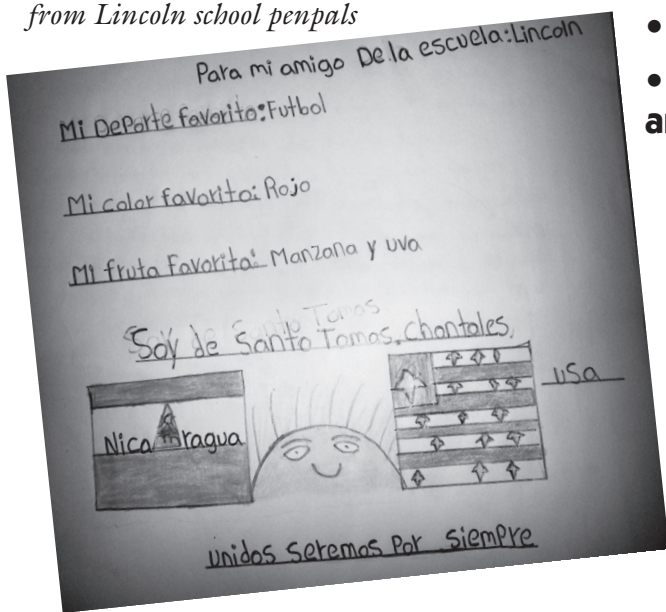 from Lincoln school penpals
Para mi amigo De la escuela:Lincoln
Mi Deporte favorito:Futbol
Mi color favorito: Rojo
Mi fruta Favorita: Manzana y uva
Soy de Santo Tomas, chontales,
Nicaragua
usa
unidos seremos por siempre